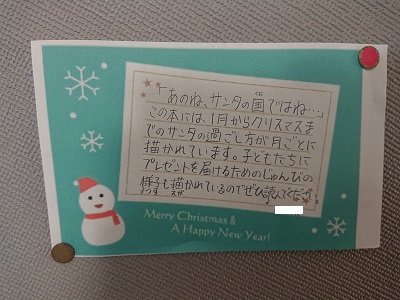 「あのね、サンタの国ではね…」
くに
この本には、1月からクリスマスま
でのサンタの過ごし方が月ごとに
描かれています。子どもたちに
プレゼントを届けるためのじゅんびの
様子も描かれているのでぜひ読んでください。
ようす えが
Merry Christmas &
A Happy New Year!